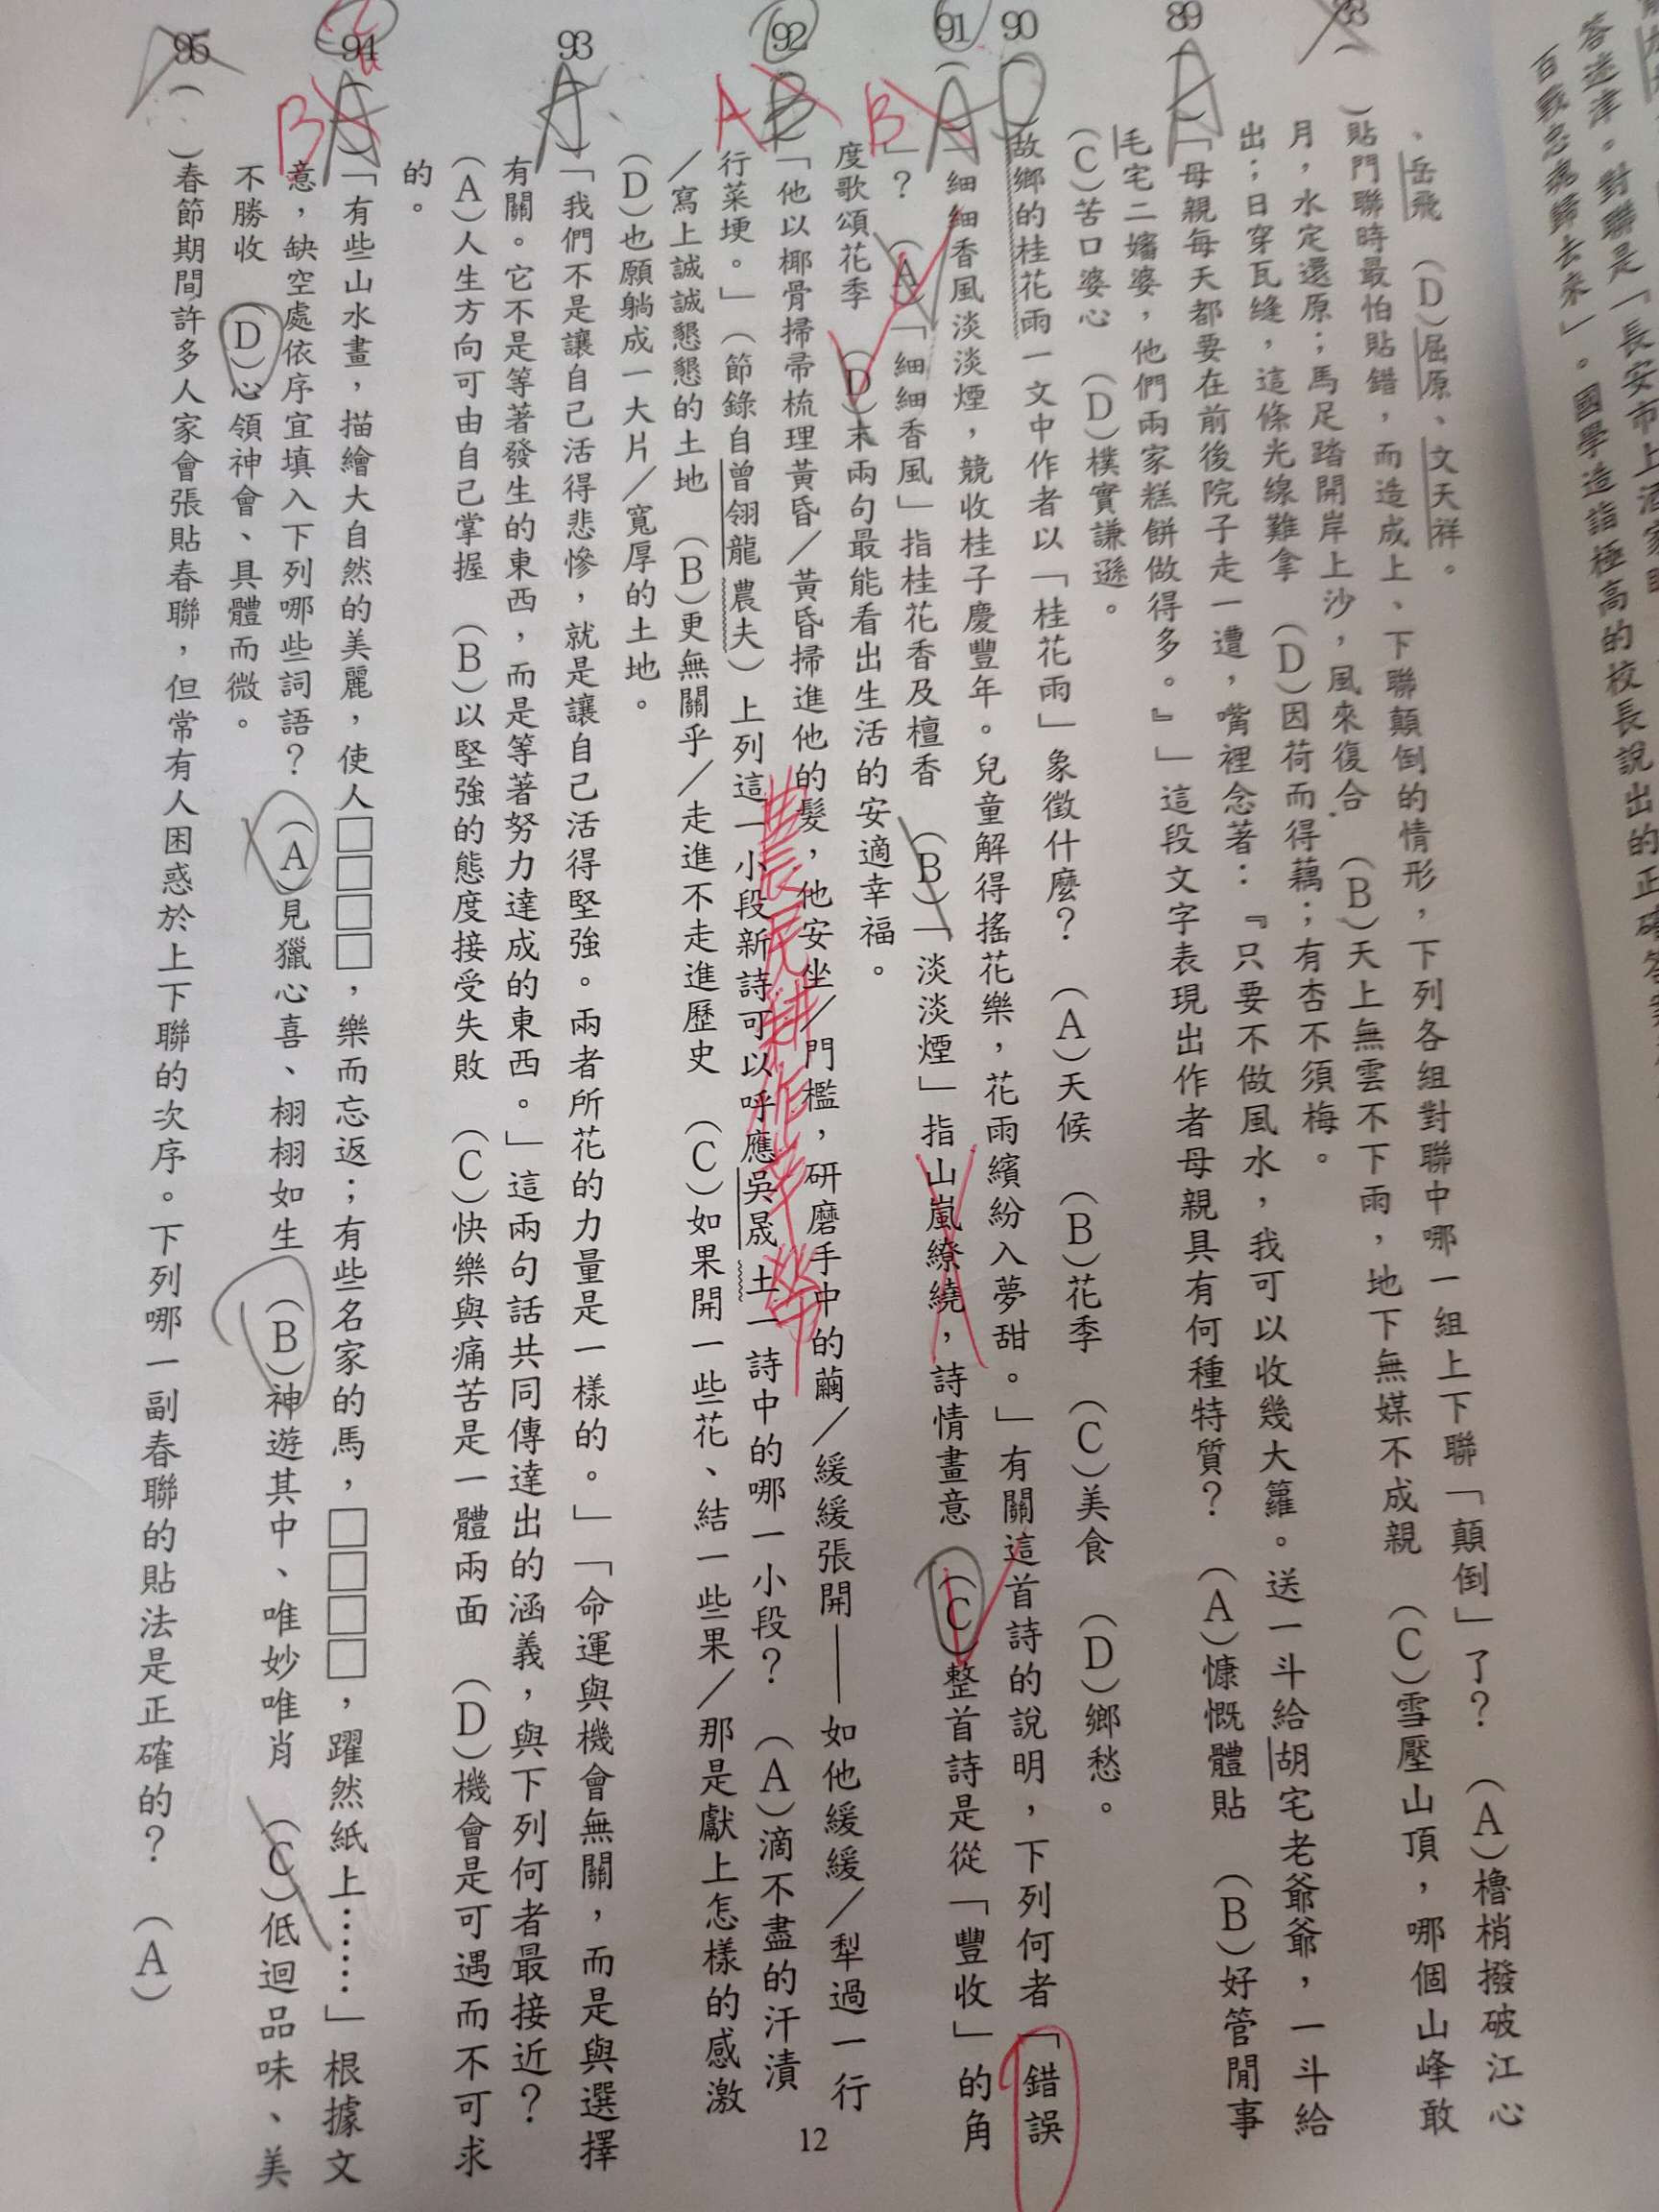 百戰
歸去來」。國學造詣極高的校長說出的正確答案
答迷津。對聯是「長安市上酒家眠
、岳飛 (D)屈原、文天祥。
88 ( )貼門聯時最怕貼錯，而造成上、下聯顛倒的情形，下列各組對聯中哪一組上下聯「顛倒」了？ (A)櫓梢撥破江心
月，水定還原；馬足踏開岸上沙，風來復合 (B)天上無雲不下雨，地下無媒不成親 (C)雪壓山頂，哪個山峰敢
出；日穿瓦縫，這條光線難拿 (D)因荷而得藕；有杏不須梅。
89 (A)「母親每天都要在前後院子走一遭，嘴裡念著：『只要不做風水，我可以收幾大籮。送一斗給胡宅老爺爺，一斗給
毛宅二嬸婆，他們兩家糕餅做得多。』」這段文字表現出作者母親具有何種特質？ (A)慷慨體貼 (B)好管閒事
(C)苦口婆心 (D)樸實謙遜。
90 (D)故鄉的桂花雨一文中作者以「桂花雨」象徵什麼？ (A)天候 (B)花季 (C)美食 (D)鄉愁。
91 (A) B 「細細香風淡淡煙，競收桂子慶豐年。兒童解得搖花樂，花雨繽紛入夢甜。」有關這首詩的說明，下列何者「錯誤
」？ (A)「細細香風」指桂花香及檀香 (B)「淡淡煙」指山嵐繚繞，詩情畫意 (C)整首詩是從「豐收」的角
度歌頌花季 (D)末兩句最能看出生活的安適幸福。
92 (B) A 「他以椰骨掃帚梳理黃昏／黃昏掃進他的髮，他安坐／門檻，研磨手中的繭／緩緩張開——如他緩緩／犁過一行
行菜埂。」（節錄自曾翎龍 農夫）上列這一小段新詩可以呼應吳晟 土一詩中的哪一小段？ (A)滴不盡的汗漬
／寫上誠誠懇懇的土地 (B)更無關乎／走進不走進歷史 (C)如果開一些花、結一些果／那是獻上怎樣的感激
(D)也願躺成一大片／寬厚的土地。
93 (A)「我們不是讓自己活得悲慘，就是讓自己活得堅強。兩者所花的力量是一樣的。」「命運與機會無關，而是與選擇
有關。它不是等著發生的東西，而是等著努力達成的東西。」這兩句話共同傳達出的涵義，與下列何者最接近？
(A)人生方向可由自己掌握 (B)以堅強的態度接受失敗 (C)快樂與痛苦是一體兩面 (D)機會是可遇而不可求
的。
94 (A) B 「有些山水畫，描繪大自然的美麗，使人□□□□，樂而忘返；有些名家的馬，□□□□，躍然紙上……」根據文
意，缺空處依序宜填入下列哪些詞語？ (A)見獵心喜、栩栩如生 (B)神遊其中、唯妙唯肖 (C)低迴品味、美
不勝收 (D)心領神會、具體而微。
95 ( )春節期間許多人家會張貼春聯，但常有人困惑於上下聯的次序。下列哪一副春聯的貼法是正確的？ (A)
12